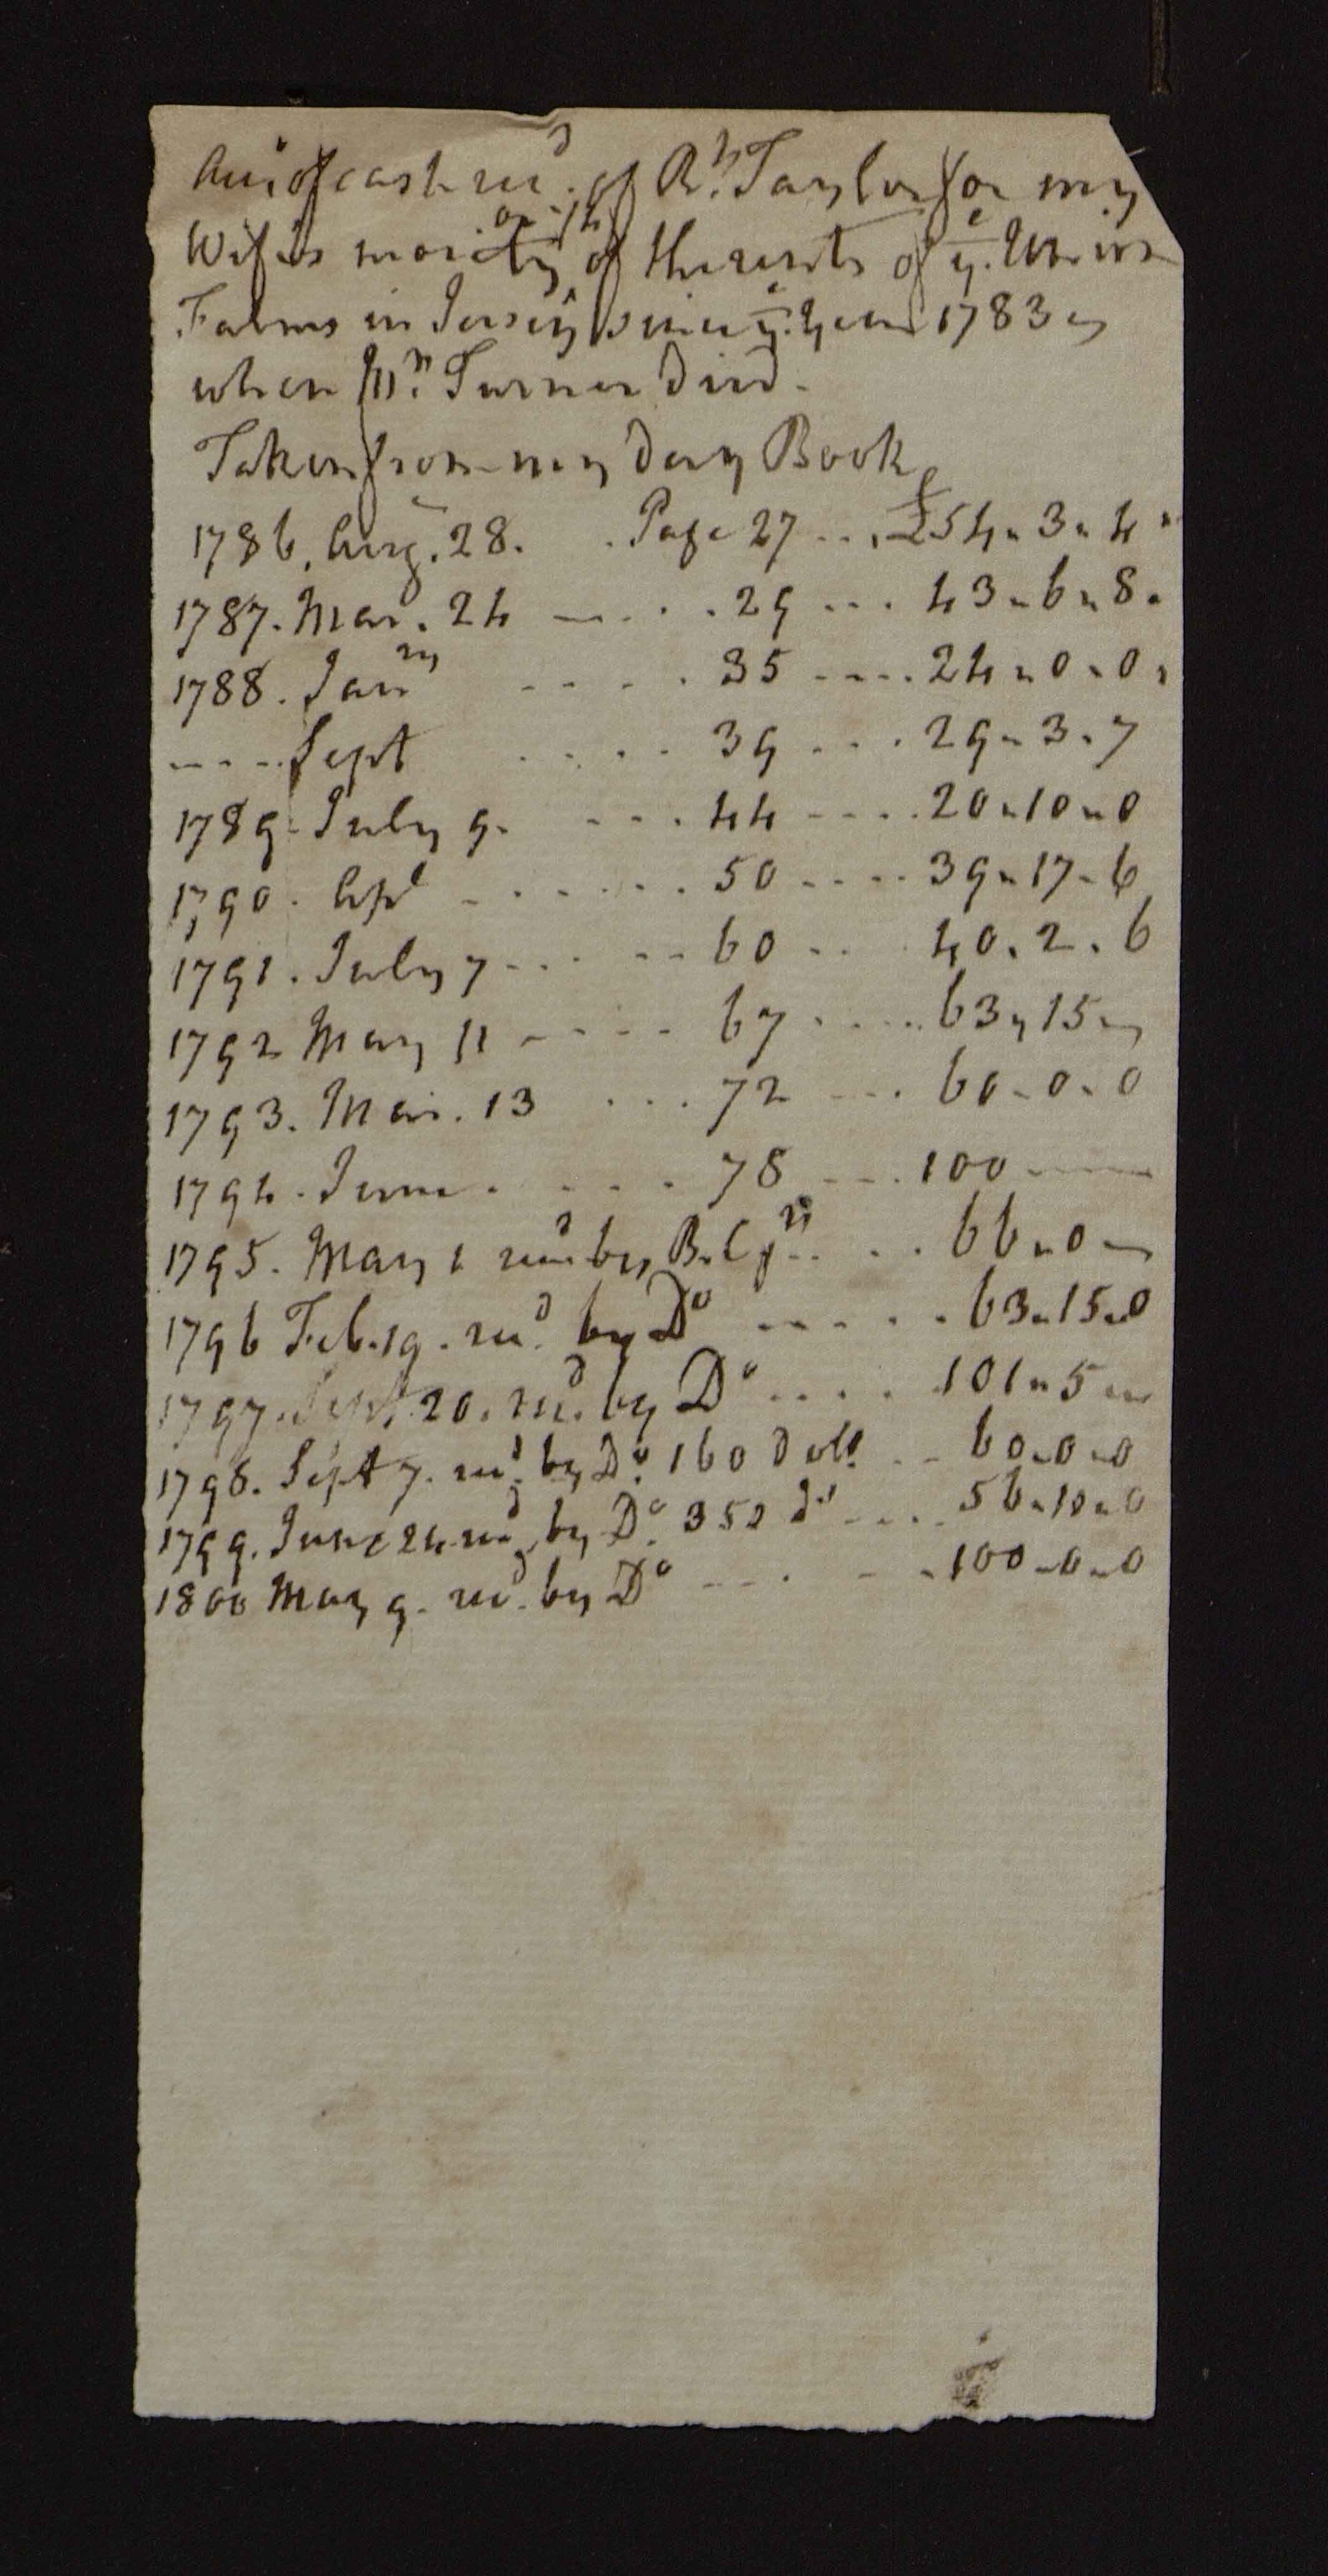 Acc. of cash recd. of Rt. Taylor for my
Wifes moiety or ½ of the rents of ye. Union
Farms in Jersey since ye. year 1783
when Mr. Turner died.
Taken from my day Book
1786. Aug. 28. . Page 27 ... £54 " 3 " 4 "
1787. Mar. 24 — . . . 29 ... 43 " 6 " 8 .
1788. Janry - - - - . 35 ---- . 24 " 0 " 0 "
---- Sept . . . . 39 . . . 29 " 3 " 7
1789 July 9. - - - . 44 ---- . 20 " 10 " 0
1790. Apl - . . . . . 50 ---- 39 " 17 - 6
1791. July 7 - - . -- 60 -- 40 . 2 . 6
1792 May 11 - - - - 67 . . . . 63 " 15 "
1793. Mar. 13 . . . 72 --- . 60 - 0 - 0
1794. June . . . . 78 --- . 100 ----
1795. May 1 recd by B. C . . . 66 " 0 —
1796 Feb. 19. recd. by Do ----- . . 63 " 15 " 0
1797. Sept. 20. recd. by Do . . . . 101 " 5 "
1798. Sept 7. recd. by Do. 160 doll. . - 60 " 0 " 0
1799. June 24 recd. by Do. 352 do ---- . 56 " 10 " 0
1800 May 9. recd. by Do --- . - - . 100 - 0 - 0